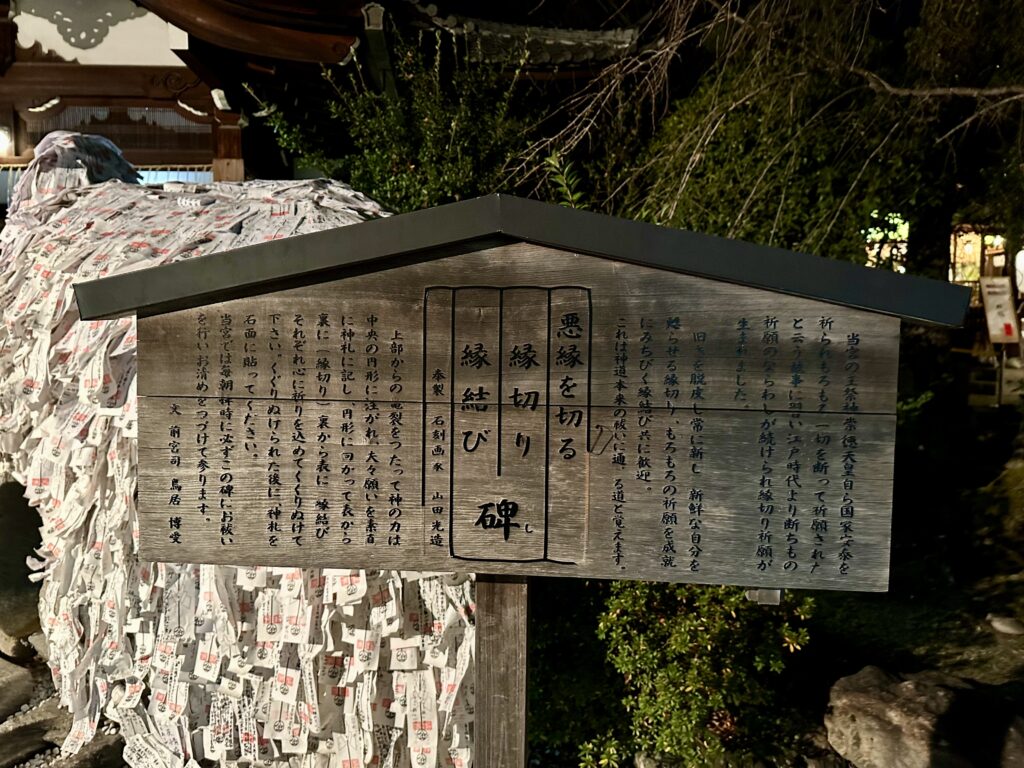 当宮の主祭神崇徳天皇自ら国家安泰を
祈られもろもろ一切を断って祈願された
と云う故事に習い江戸時代より断ちもの
祈願のならわしが続けられ縁切り祈願が
生まれました。
旧 を脱皮し常に新し 新鮮な自分を
らせる縁切り、もろもろの祈願を成就
にみちびく縁結び共に歓迎。
これは神道本来の祓いに通 る道と覚えます。
悪縁を切る
縁切り
縁結び
碑
し
奉製 石刻画家 山田光造
上部からの 裂をつたって神の力は
中央の円形に注がれ夫々願いを素直
に神札に記し、円形に向かって表から
裏に 縁切り 裏から表に 縁結び
それぞれ心に祈りを込めてくぐりぬけて
下さい。くぐりぬけられた後に神札を
石面に貼ってください。
当宮では毎朝 時に必ずこの碑にお祓い
を行いお清めをつづけて参ります。
文 前宮司 鳥居 博愛